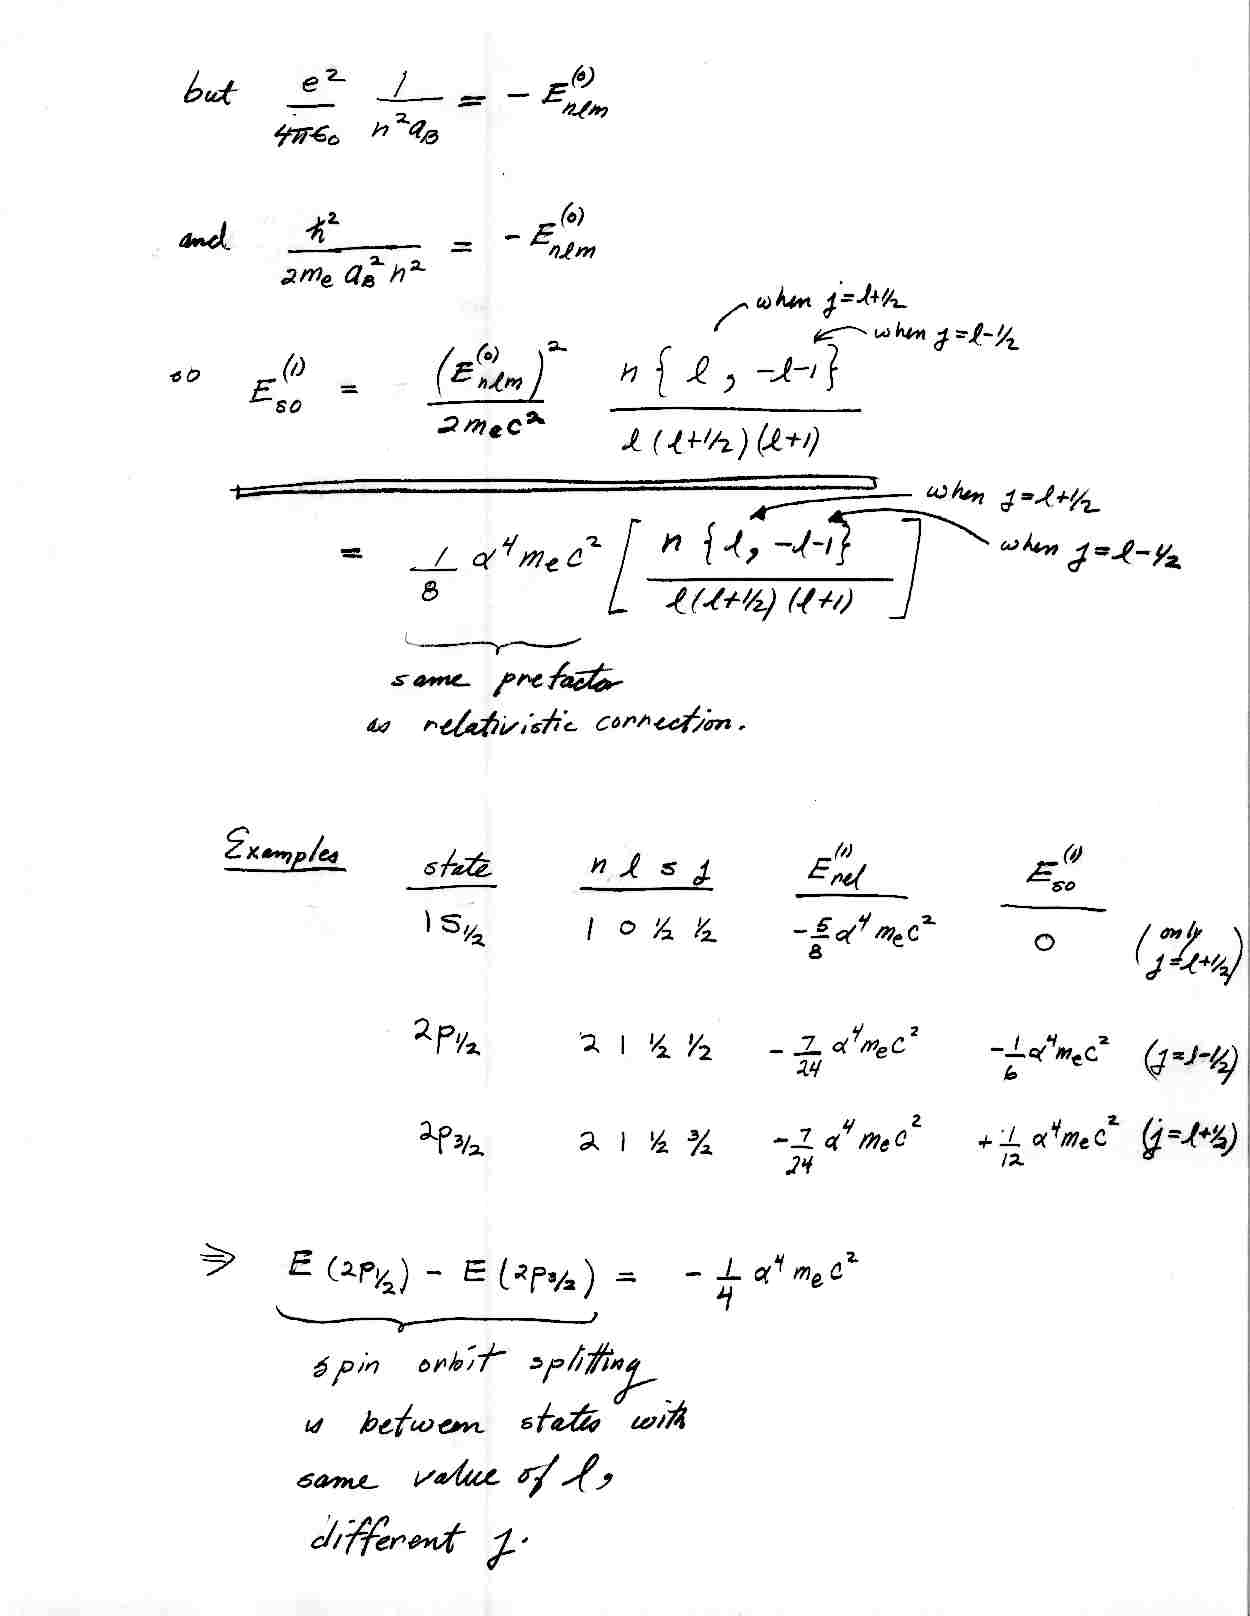 but e² / 4πϵ₀ 1 / n²a_B = - E_nlm^(0)
and ħ² / 2mₑ a_B² n² = - E_nlm^(0)
when j=l+1/2
when j=l-1/2
so E_so^(1) = (E_nlm^(0))² / 2mₑc² n{l, -l-1} / l(l+1/2)(l+1)
when j=l+1/2
when j=l-1/2
= 1/8 α⁴mₑc² [ n{l, -l-1} / l(l+1/2)(l+1) ]
same prefactor
as relativistic correction.
Examples state n l s j E_rel^(1) E_so^(1)
1S1/2 1 0 1/2 1/2 -5/8 α⁴mₑc² 0 (only j=l+1/2)
2P1/2 2 1 1/2 1/2 -7/24 α⁴mₑc² -1/6 α⁴mₑc² (j=l-1/2)
2P3/2 2 1 1/2 3/2 -7/24 α⁴mₑc² +1/12 α⁴mₑc² (j=l+1/2)
⇒ E(2P1/2) - E(2P3/2) = -1/4 α⁴mₑc²
spin orbit splitting
is between states with
same value of l,
different j.